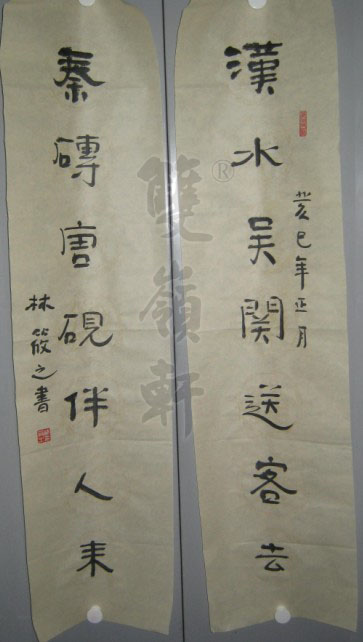 漢水吴関送客去
癸巳年正月
秦磚唐硯伴人来
林筱之書
雙嶺軒®